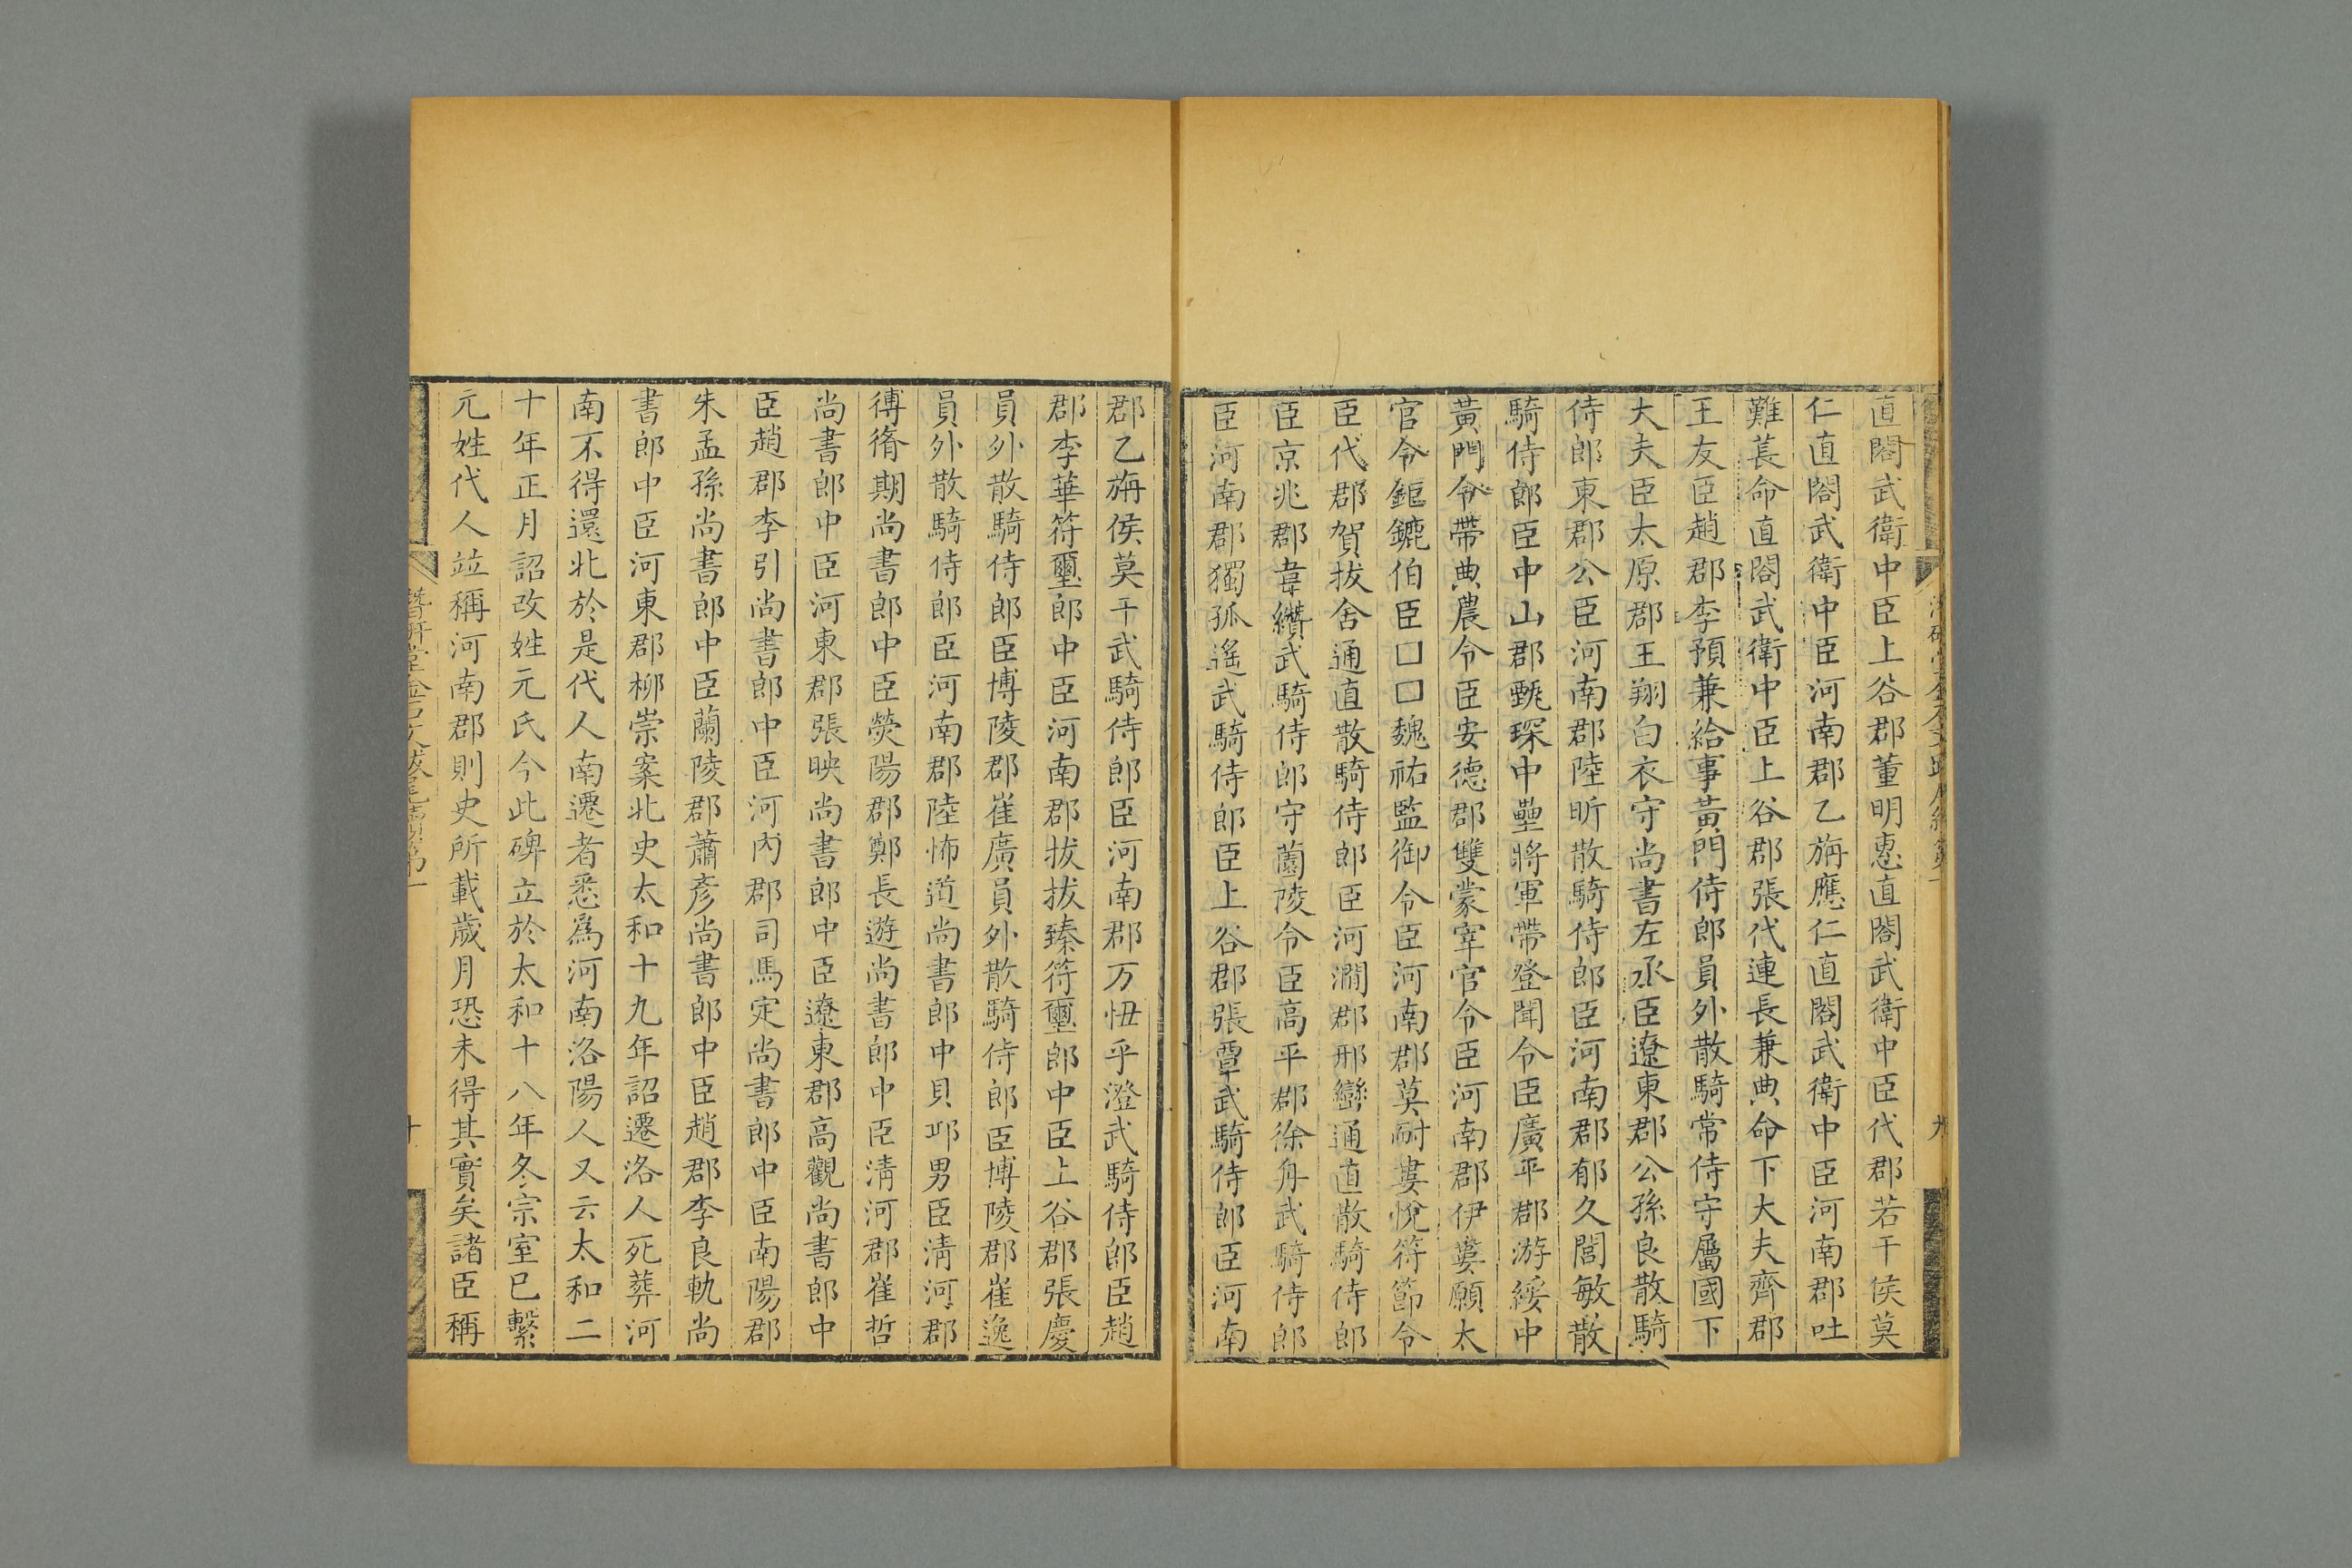 直閤武衛中臣上谷郡董明惠直閤武衛中臣代郡若干侯莫
仁直閤武衛中臣河南郡乙旃應仁直閤武衛中臣河南郡吐
難萇命直閤武衛中臣上谷郡張代連長兼典命下大夫齊郡
王友臣趙郡李預兼給事黃門侍郎員外散騎常侍守屬國下
大夫臣太原郡王翔白衣守尚書左丞臣遼東郡公孫良散騎
侍郎東郡公臣河南郡陸昕散騎侍郎臣河南郡郁久閭敏散
騎侍郎臣中山郡甄琛中壘將軍帶登聞令臣廣平郡游綏中
黃門令帶典農令臣安德郡雙蒙宰官令臣河南郡伊蔞願太
官令鉅鏕伯臣囗囗魏祐監御令臣河南郡莫耐婁悅符節令
臣代郡賀拔舍通直散騎侍郎臣河澗郡邢巒通直散騎侍郎
臣京兆郡韋纘武騎侍郎守蘭陵令臣高平郡徐丹武騎侍郎
臣河南郡獨孤遙武騎侍郎臣上谷郡張覃武騎侍郎臣河南
郡乙旃侯莫干武騎侍郎臣河南郡万忸乎澄武騎侍郎臣趙
郡李華符璽郎中臣河南郡拔拔臻符璽郎中臣上谷郡張慶
員外散騎侍郎臣博陵郡崔廣員外散騎侍郎臣博陵郡崔逸
員外散騎侍郎臣河南郡陸怖道尚書郎中貝邱男臣清河郡
傅脩期尚書郎中臣熒陽郡鄭長遊尚書郎中臣清河郡崔哲
尚書郎中臣河東郡張映尚書郎中臣遼東郡高觀尚書郎中
臣趙郡李引尚書郎中臣河內郡司馬定尚書郎中臣南陽郡
朱孟孫尚書郎中臣蘭陵郡蕭彥尚書郎中臣趙郡李良軌尚
書郎中臣河東郡柳崇案北史太和十九年詔遷洛人死葬河
南不得還北於是代人南遷者悉爲河南洛陽人又云太和二
十年正月詔改姓元氏今此碑立於太和十八年冬宗室已繫
元姓代人竝稱河南郡則史所載歲月恐未得其實矣諸臣稱